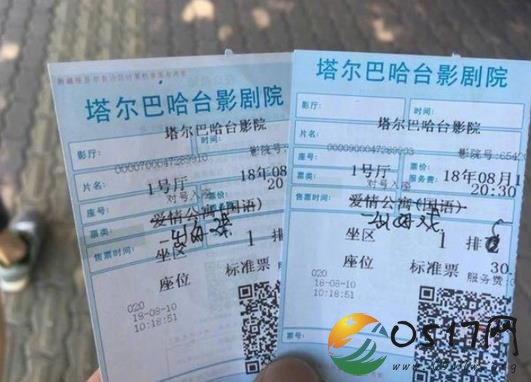 塔尔巴哈台影剧院
塔尔巴哈台影院
影厅:
影院号:
片名:
1号厅
18年08
座号:
对号入座
20
票类:
爱情公寓(国语)
一出好戏
售票时间:
坐区
1
座位
标准票
020
18-08-10
10:18:51
塔尔巴哈台影剧院
影厅:
时间:
塔尔巴哈台影院
影院号:654
片名:
1号厅
票价:
服务费:
18年08月1
座号:
对号入座
20:30
票类:
爱情公寓(国语)
一出好戏
售票时间:
坐区
1
排
座位
标准票
30.
服务费:
020
18-08-10
10:18:51
票号:
OS17网